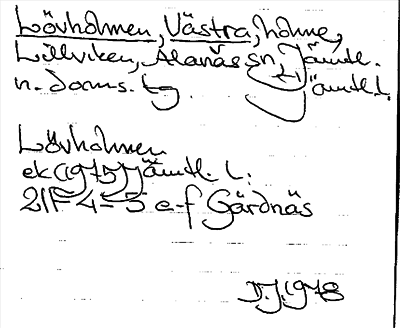 Lövholmen, Västra, holme,
Lillviken, Alanäs sn, Jämtl.
n. doms. tg Jämtl. l.
Lövholmen
ek (1975) Jämtl. l:
21F 4-5 e-f Gärdnäs
D.J. 1978